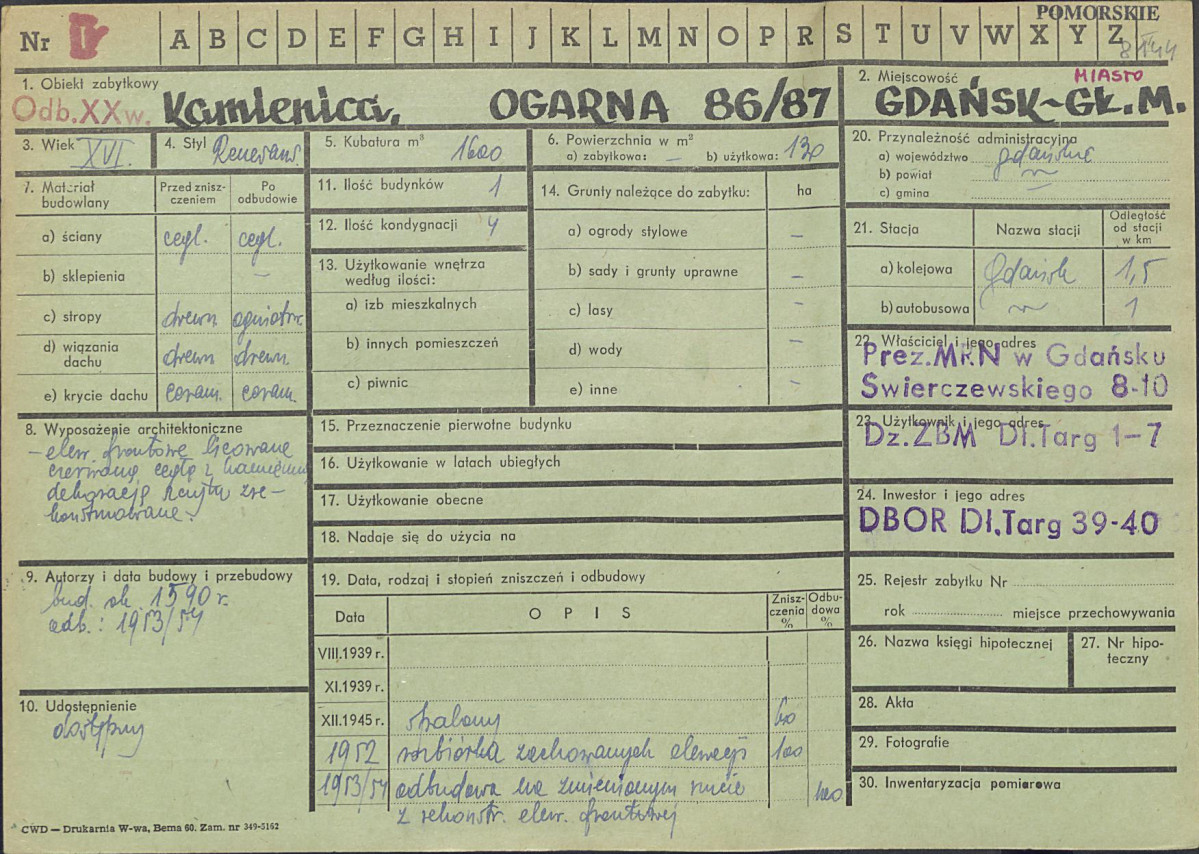 POMORSKIE
Nr I A B C D E F G H I J K L M N O P R S T U V W X Y Z
1. Obiekt zabytkowy
Odb.XXw. Kamienica, OGARNA 86/87
2. Miejscowość MIASTO
GDAŃSK-GŁ.M.
3. Wiek XVI.
4. Styl Renesans.
5. Kubatura m³ 1600
6. Powierzchnia w m²
a) zabytkowa: – b) użytkowa: 130
20. Przynależność administracyjna
a) województwo gdańskie
b) powiat
c) gmina
7. Materiał budowlany
Przed zniszczeniem
Po odbudowie
a) ściany cegl. cegl.
b) sklepienia –
c) stropy drewn ogniotrw.
d) wiązania dachu drewn drewn.
e) krycie dachu ceram. ceram.
11. Ilość budynków 1
12. Ilość kondygnacji 4
13. Użytkowanie wnętrza
według ilości:
a) izb mieszkalnych
b) innych pomieszczeń
c) piwnic
14. Grunty należące do zabytku: ha
a) ogrody stylowe –
b) sady i grunty uprawne –
c) lasy –
d) wody –
e) inne –
21. Stacja Nazwa stacji Odległość od stacji w km
a) kolejowa Gdańsk 1,5
b) autobusowa 1
22. Właściciel i jego adres
Prez.MRN w Gdańsku
Świerczewskiego 8-10
23. Użytkownik i jego adres
Dz.ZBM Dł.Targ 1-7
24. Inwestor i jego adres
DBOR Dł.Targ 39-40
8. Wyposażenie architektoniczne
– elew. frontowe licowane
czerwoną cegłą z kamienną
dekoracją zre-
konstruowane.
15. Przeznaczenie pierwotne budynku
16. Użytkowanie w latach ubiegłych
17. Użytkowanie obecne
18. Nadaje się do użycia na
9. Autorzy i data budowy i przebudowy
bud. ok. 1590 r.
odb.: 1953/54
10. Udostępnienie
dostępny
19. Data, rodzaj i stopień zniszczeń i odbudowy
Data OPIS Zniszczenia % Odbudowa %
VIII.1939 r.
XI.1939 r.
XII.1945 r. spalony 60
1952 rozbiórka zachowanych elewacji 100
1953/54 odbudowa na zmienionym rzucie 100
z rekonstr. elew. frontowej
25. Rejestr zabytku Nr
rok miejsce przechowywania
26. Nazwa księgi hipotecznej
27. Nr hipoteczny
28. Akta
29. Fotografie
30. Inwentaryzacja pomiarowa
CWD — Drukarnia W-wa, Bema 60. Zam. nr 349-5162